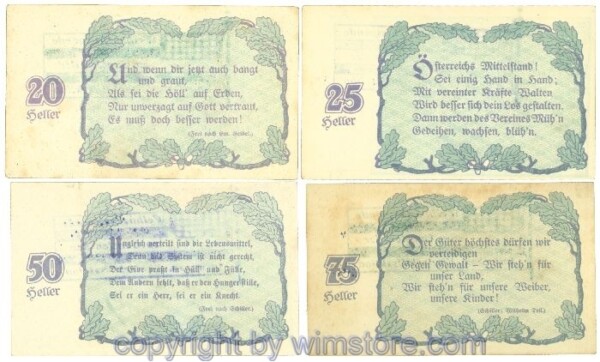 20
Heller
Und wenn dir jetzt auch bangt
und graut,
Als sei die Höll' auf Erden,
Nur unverzagt auf Gott vertraut,
Es muß doch besser werden!
(Frei nach Em. Geibel.)
25
Heller
Österreichs Mittelstand!
Sei einig Hand in Hand;
Mit vereinter Kräfte Walten
Wird besser sich dein Los gestalten.
Dann werden des Vereines Müh'n
Gedeihen, wachsen, blüh'n.
50
Heller
Ungleich verteilt sind die Lebensmittel,
das ist nicht gerecht,
Der Eine praßt in Hüll' und Fülle,
Dem Andern fehlt, daß er den Hunger stille,
Sei er ein Herr, sei er ein Knecht.
(Frei nach Schiller.)
75
Heller
Der Güter höchstes dürfen wir
verteidigen
Gegen Gewalt – Wir steh'n für
unser Land,
Wir steh'n für unsere Weiber,
unsere Kinder!
(Schiller: Wilhelm Tell.)
copyright by wimstore.com